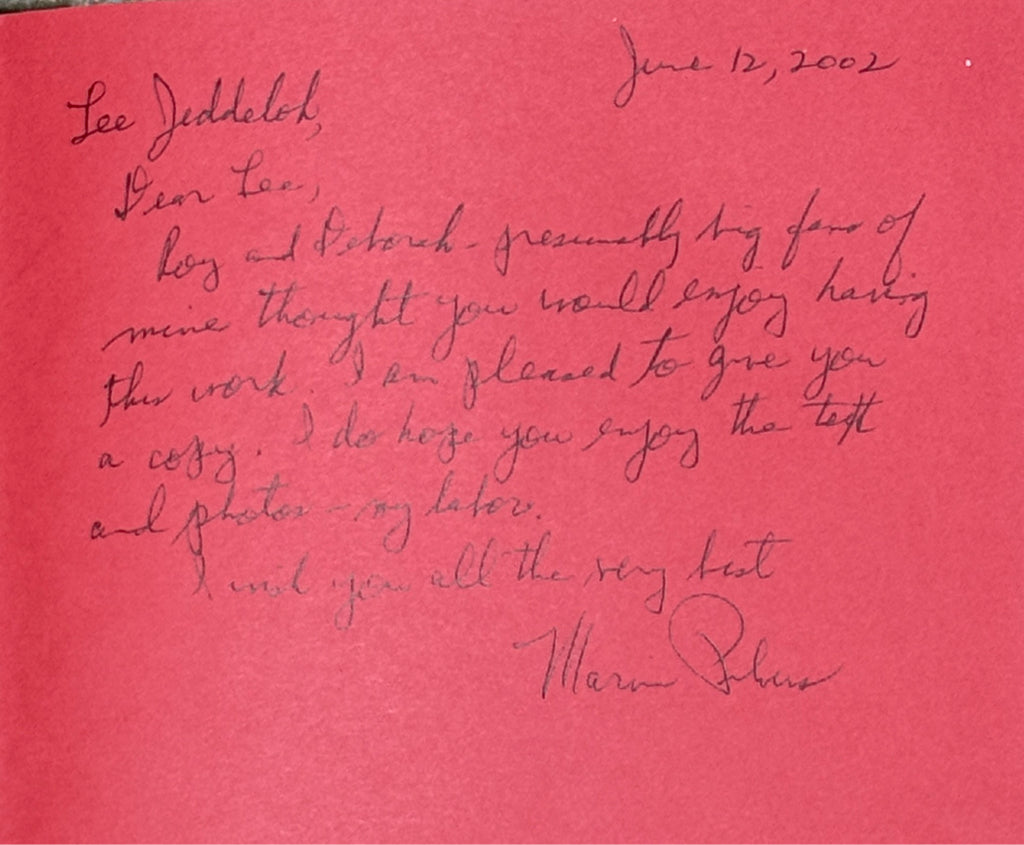 June 12, 2002
Lee Jeddeloh,
Dear Lee,
Roy and Deborah - presumably big fans of
mine thought you would enjoy having
this work. I am pleased to give you
a copy. I do hope you enjoy the text
and photos - my labor.
I wish you all the very best
Marvin